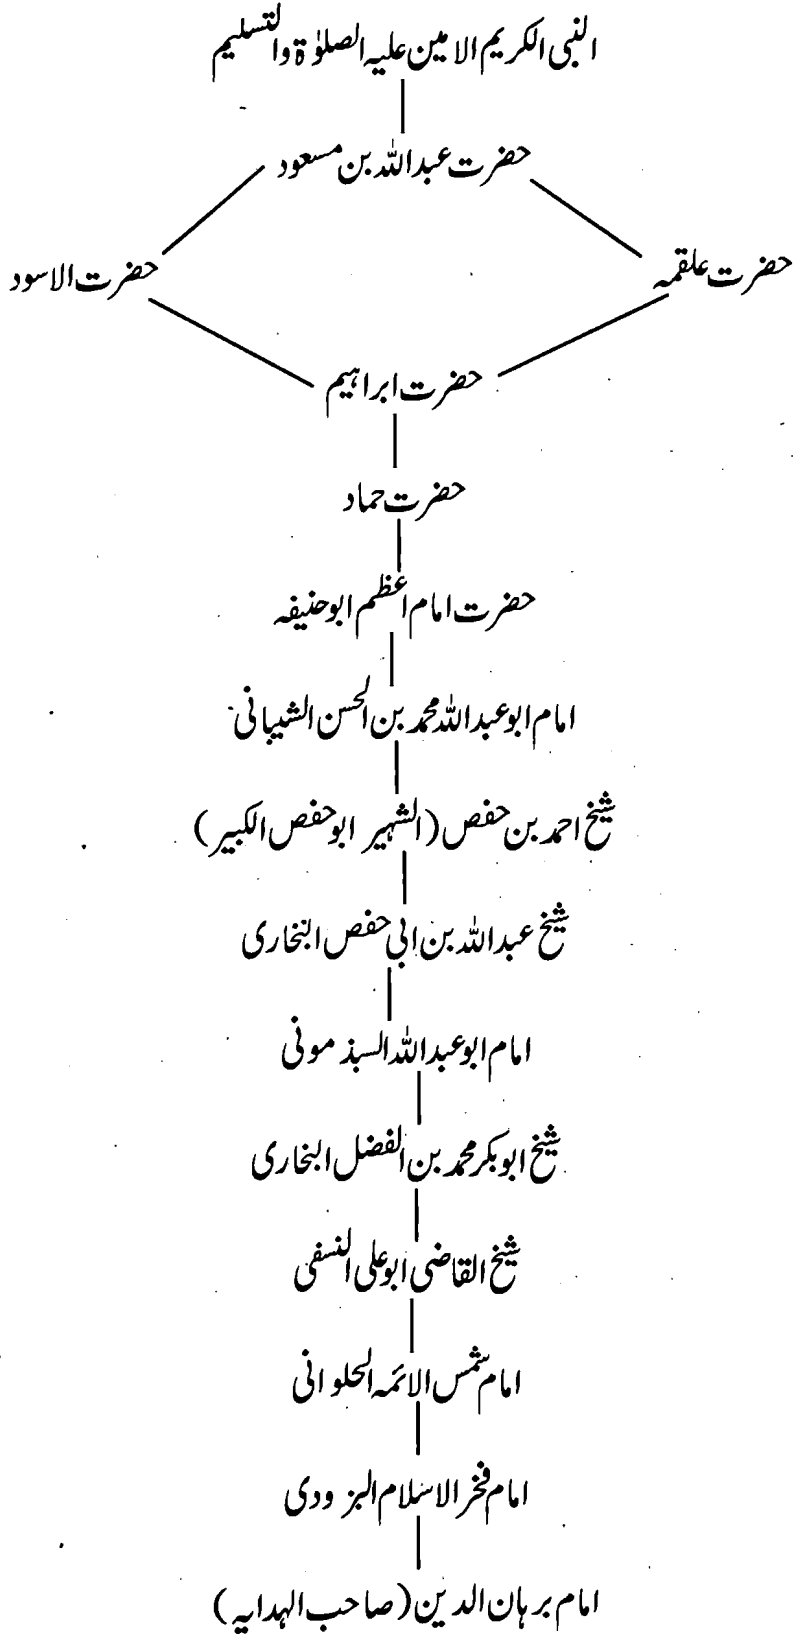 النبی الکریم الامین علیہ الصلوٰۃ والتسلیم
حضرت عبداللہ بن مسعود
حضرت علقمہ
حضرت الاسود
حضرت ابراہیم
حضرت حماد
حضرت امام اعظم ابوحنیفہ
امام ابوعبداللہ محمد بن الحسن الشیبانی
شیخ احمد بن حفص (الشہیر ابوحفص الکبیر)
شیخ عبداللہ بن ابی حفص البخاری
امام ابوعبداللہ السبذمونی
شیخ ابوبکر محمد بن الفضل البخاری
شیخ القاضی ابوعلی النسفی
امام شمس الائمہ الحلوانی
امام فخر الاسلام البزودی
امام برہان الدین (صاحب الہدایہ)